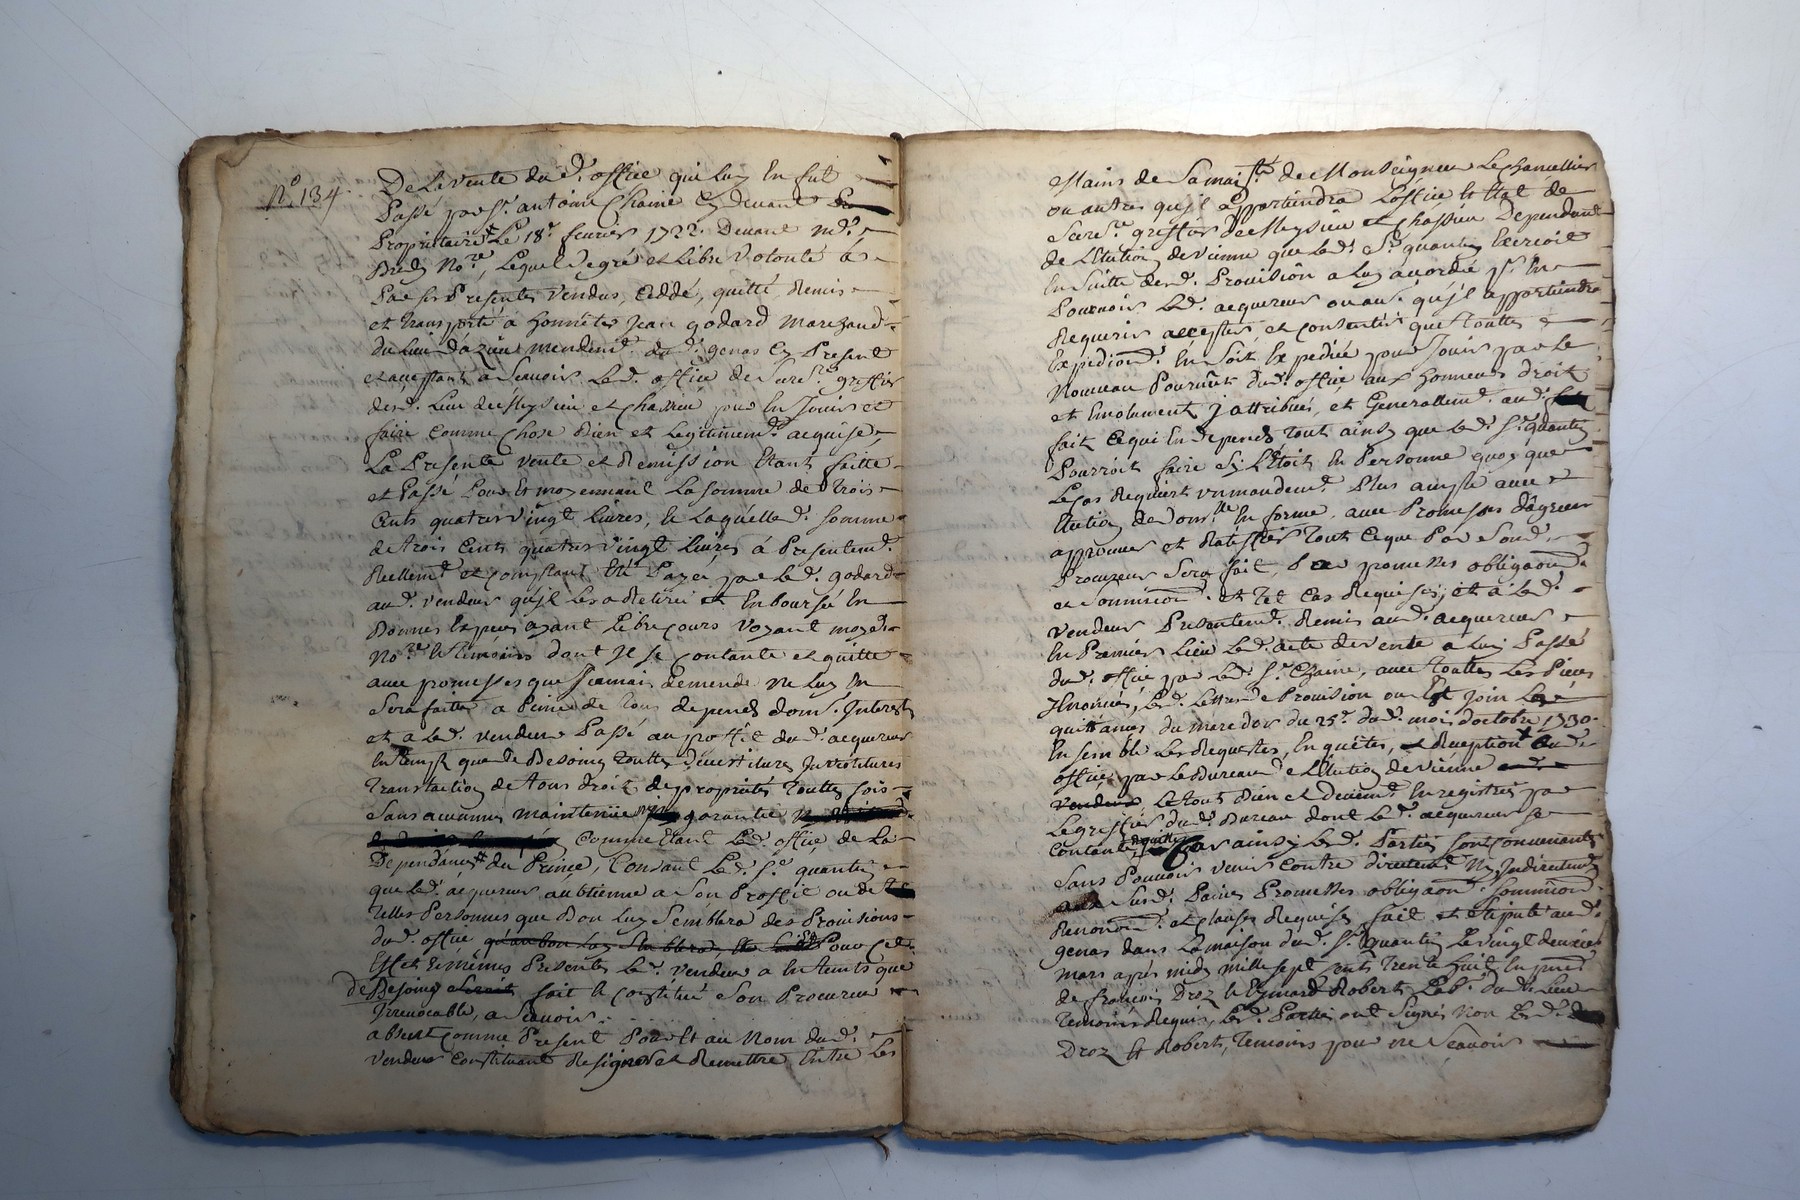 N° 134
De La vente du d. office qui luy En fut
Passé par Sr. antoine Chaine Cy devant
Propritaire Le 18e. fevrier 1722. Devant me.
Bredy Nore, Lequel de gré et Libre volonté a
Par ses Presentes vendus, Ceddé, quitté, Remis
et transporté a honnête Jean godard Marchand
du lieu d'azieu mendemt. du d. genas Cy Present
et acceptant a Scavoir Le d. office de Secre.re greffier
des d. Lieu de Meysieu et Chassieu pour En Jouir et
faire comme Chose Bien et Legitimemt. acquise,
La Presente vente et Remission Etant faitte
et Passé Pour Et moyennant La somme de trois
Cents quatre vingt livres, La quelle d. somme
de trois Cents quatre vingt livres a Presentemt.
Reellemt. et comptant Eté Payéé par Le d. godard
au d. vendeur qu'jl Les a Retirée et Emboursé En
Bonnes Espèces ayant Libre cours voyant moy d.
Nore. et temoins dont Jl se contante et quitte
avec promesses que Jamais demende ne luy En
Sera faitte a Peine de tous depends dom. Interests
et a Le d. vendeur Passé au proffit du d. acquereur
En temps que de Besoing touttes Devestitures Jnvestitures
Translation de tous droit de propriétés touttes fois
Sans aucunes maintenüe ny garantie
Comme Etant Le d. office de La
Dependance du Prince, Consant Le d. Sr. quantin
que Le d. acquereur aubtienne a Son Proffit ou de
telles Personnes que Bon Luy Semblera des Provisions
du d. office qu'au bon Luy Semblera, Pour Cet
Effet Es mêmes Presentes Le d. vendeur a En tems que
de Besoing fait Et constitué Son Procureur
Jrrevocable, a Scavoir
absent Comme Present Pour Et au Nom du d.
vendeur Constituant Resigner et Remettre Entre Les
Mains de Sa majesté. de Monseigneur Le Chancellier
ou autres qu'jl appartiendra L'office Et Etat de
Secre.re greffier de Meysieu et Chassieu Dependant
de L'Election de vienne que Le d. Sr. quantin Exercoit
En Suitte des d. Provision a Luy accordée pr. En
Pourvoir Le d. acquereur ou au. qu'jl appartiendra
Requerir accepter et Consentir que Touttes
Expedition. En Soit Expediée pour Jouir par Le
Nouveau Pourvût du d. office aux honneurs droits
et Emolument j attribués, et Generallemt. au d.
fait Ce qui En depends tout ainsy que Le d. Sr. quantin
Pourroit faire Sy L'Etoit En Personne quoy que
Le Cas Requiert un mandemt. Plus ample avec
Election de Dom.lle En forme, avec Promesses d'agreer
approuver et Ratiffier Tout Ce que Par Son d.
Procureur Sera fait, Par promesses obligaon.
et Soumission. et tel Cas Requises; et a Le d.
vendeur Presentemt. Remis au d. acquereur
En Premier Lieu Le d. acte de vente a Luy Passé
du d. office par Le d. Sr. Chaine, avec touttes Les Pieces
Enoncées, Le d. Lettres de Provision ou Est Join Les
quittances du marc dor du 25e. du d. mois d'octobre 1730.
En semble Les Requestes, Enquêtes, et Reception du d.
office par Le Bureau de L'Election de vienne
vendeur Le tout Bien et Deuemt. Enregistres par
Le greffier du d. Bureau dont Le d. acquereur se
Contante, et quitte Car ainsy Le d. Parties Sont Convenants
Sans Pouvoir venir Contre directemt. Ny Jndirectemt.
aux Sus d. Paines Promesses obligaon. Soumission.
Renonon. et clauses Requises, fait et Stipule au d.
genas dans La maison du d. Sr. Quantin Le vingt deuxieme
Mars après midy mille sept Cents trente huit En presce.
de francois Droz et Eymard Robert Labr. du d. Lieu
temoins Requis, Le d. Parties ont Signés Non Les d.
Droz Et Robert, temoins pour ne Scavoir